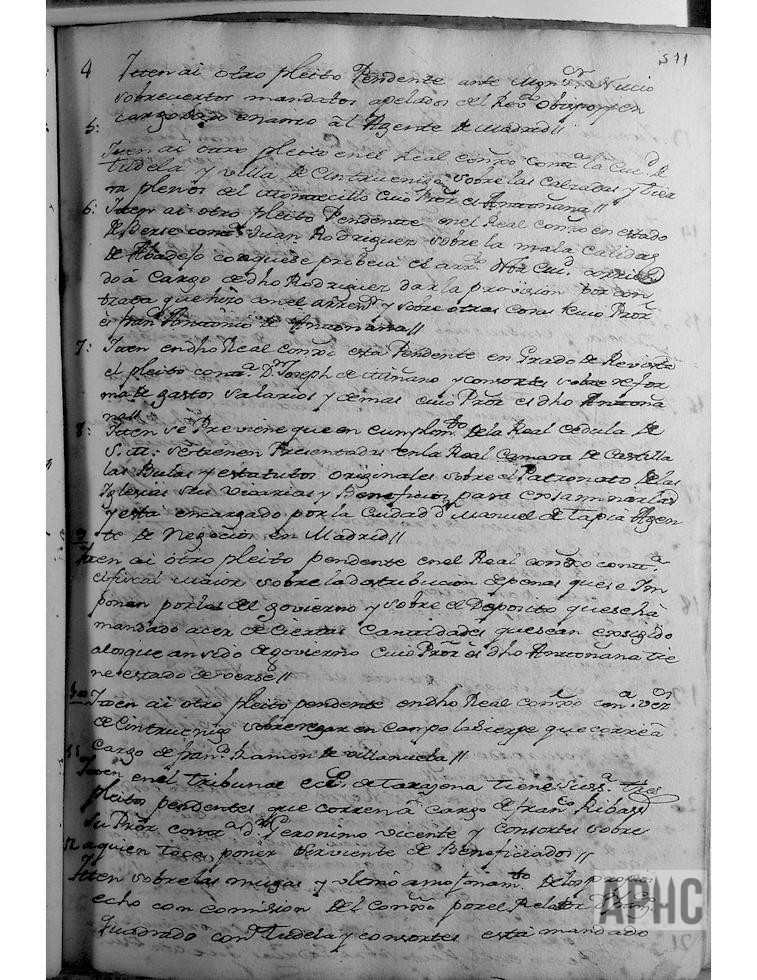 511
4 Itten ai otro pleito Pendente ante Mon.or Nucio
sobre ciertos mandatos apelados del Rev.o Obispo
cargo al Agente de Madrid //
5:
Itten ai otro pleito en el Real cons.o cont.a la Ciu.d de
Tudela y Villa de Cintruenigo sobre las calzadas y
plenos del Montecillo cuio Pror es Antoñana //
6: Itten ai otro pleito Pendente en el Real conso en estado
de Verse cont.a Juan Rodriguez sobre la mala calidad
de Abadejo con que se probeia el arr.o Nra Ciu.d
do à Cargo de dho Rodriguez dar la provision por con
trata que hizo con el arrend.r y sobre otras cosas cuio Pror
es fran.co Antonio de Antoñana //
7: Itten en dho Real conso està Pendente en Grado de Revista
el pleito cont.a Dn Joseph de Miñano y consortes sobre refor
ma de gastos salarios y demas cuio Pror es dho Antoña
na //
8: Itten se Previene que en cumplim.to de la Real cedula de
S. M. se tienen Presentadas en la Real Camara de Castilla
las Bulas y estatutos originales sobre el Patronato de las
Iglesias sus Vicarias y Beneficios para exsaminarlas
y està encargado por la Ciudad Dn Manuel de tapia Agen
te de Negocios en Madrid //
9
Itten ai otro pleito pendente en el Real conso cont.a
el fiscal maior sobre la distribucion de penas que se Im
ponen por las del govierno y sobre el Deposito que se hà
mandado acer de Ciertas Cantidades que sean exsigido
a los que an sido de govierno cuio Pror es dho Antoñana tie
ne estado de verse //
10 Itten ai otro pleito pendente en dho Real conso con.a
de Cintruenigo sobre regar en campo la sierpe que corre à
Cargo de fran.co Ramon de Villanueba //
11
Itten en el tribunal ecc.o de tarazona tiene tres
pleitos pendentes que corren à cargo de fran.co Ribas
su Pror cont.a dn Geronimo Vicente y Consortes sobre
a quien toca poner Serviente de Beneficiados //
12
Itten sobre las mugas y ultimo amojonam.to de los propios
echo con comision del Conso por el Relator
quadrado con Tudela y consortes està mandado
APHC